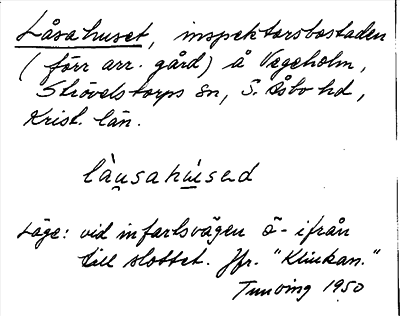 Låsahuset, inspektorsbostaden
(förr arr. gård) å Vegeholm,
Strövelstorps sn, S. Åsbo hd,
Krist. län.
là̱u̱sahúsəd
Läge: vid infartsvägen ö- ifrån
till slottet. Jfr. "Klinkan."
Tunving 1950